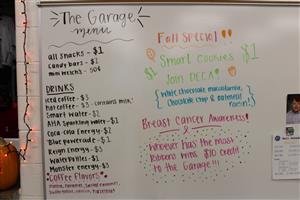 The Garage
menu
all snacks - $1
candy bars - $1
mini
- 50¢
DRINKS
iced coffee - $3
hot coffee - $3 *contains milk*
Smart water - $2
AHA Sparkling water - $1
Coca-Cola Energy - $2
Blue powerade - $1
Reign Energy - $3
Water Bottles - $1
Monster energy - $3
Coffee Flavors:
Fall Special!!
$1 Smart Cookies $1
Join DECA!
(White chocolate macadamia,
Chocolate chip & oatmeal
raisin!)
Breast Cancer Awareness!
Whoever has the most
ribbons wins $10 credit
to the Garage!!!